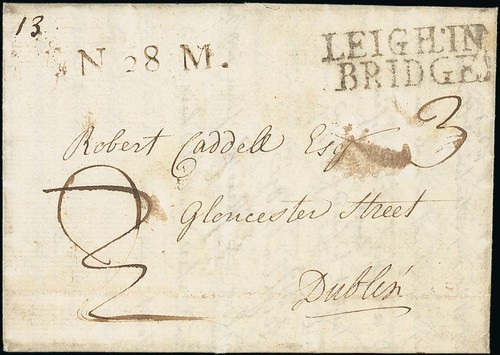 13
N 28 M.
LEIGHIN
BRIDGE
Robert Caddell Esqr
3
Gloucester Street
Dublin